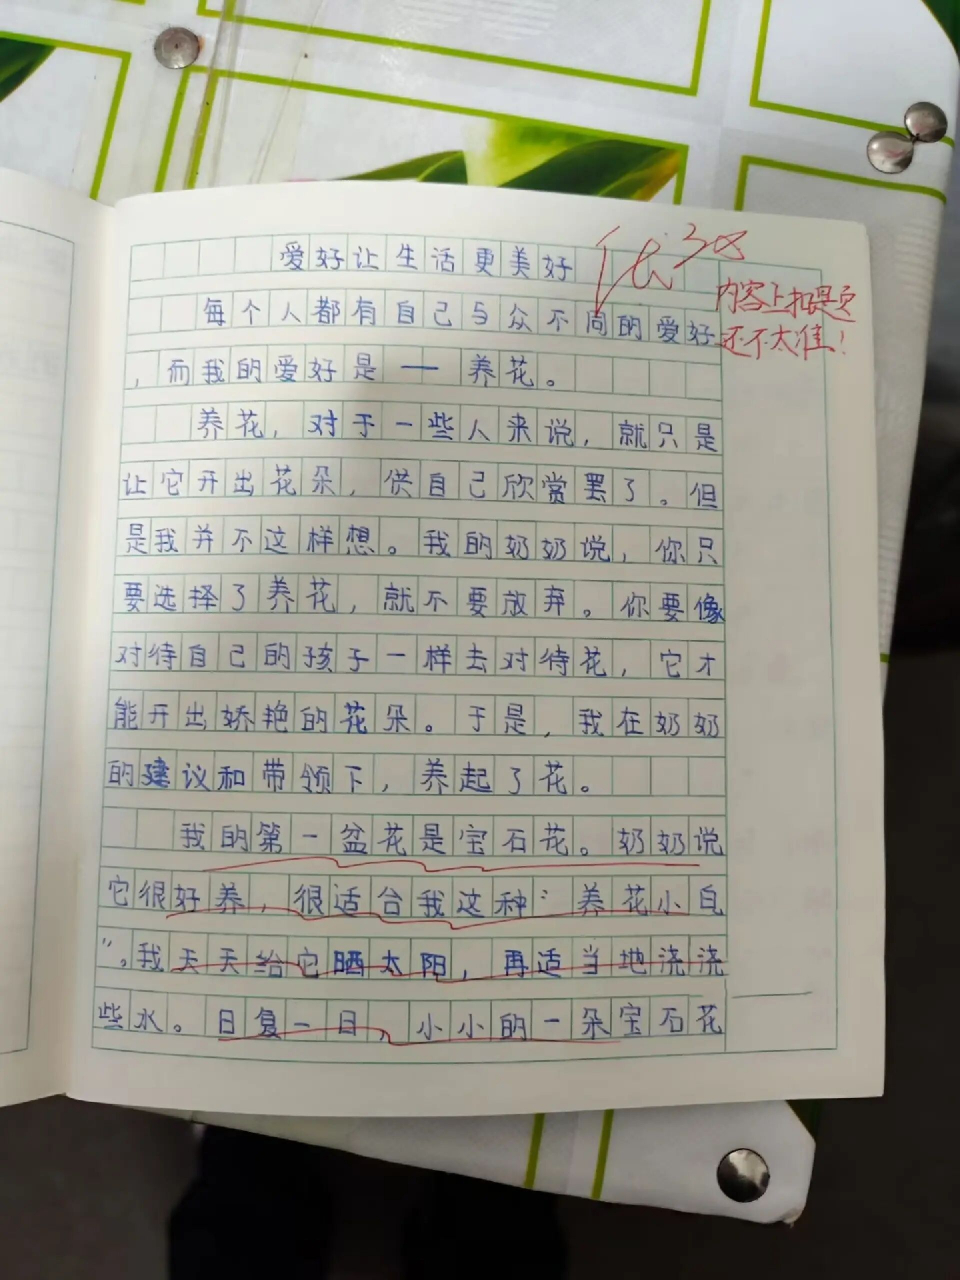 爱好让生活更美好
优 38
内容上扣题还
还不太准！
每个人都有自己与众不同的爱好
，而我的爱好是——养花。
养花，对于一些人来说，就只是
让它开出花朵，供自己欣赏罢了。但
是我并不这样想。我的奶奶说，你只
要选择了养花，就不要放弃。你要像
对待自己的孩子一样去对待花，它才
能开出娇艳的花朵。于是，我在奶奶
的建议和带领下，养起了花。
我的第一盆花是宝石花。奶奶说
它很好养，很适合我这种：养花小白
”。我天天给它晒太阳，再适当地浇浇
些水。日复一日，小小的一朵宝石花